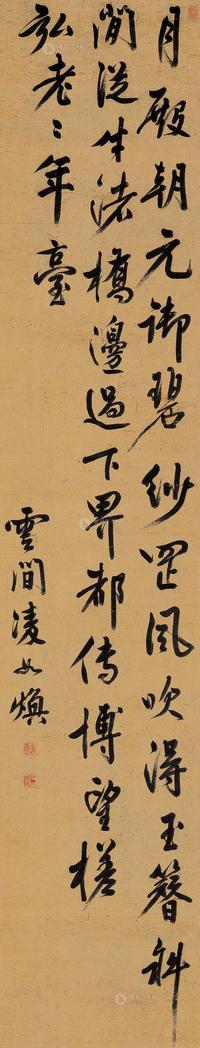 月殿朝元御碧纱罡风吹得玉簪斜
閒從牛渚橋邊過下界都傳博望槎
弘老ミ年臺
雲間凌如煥